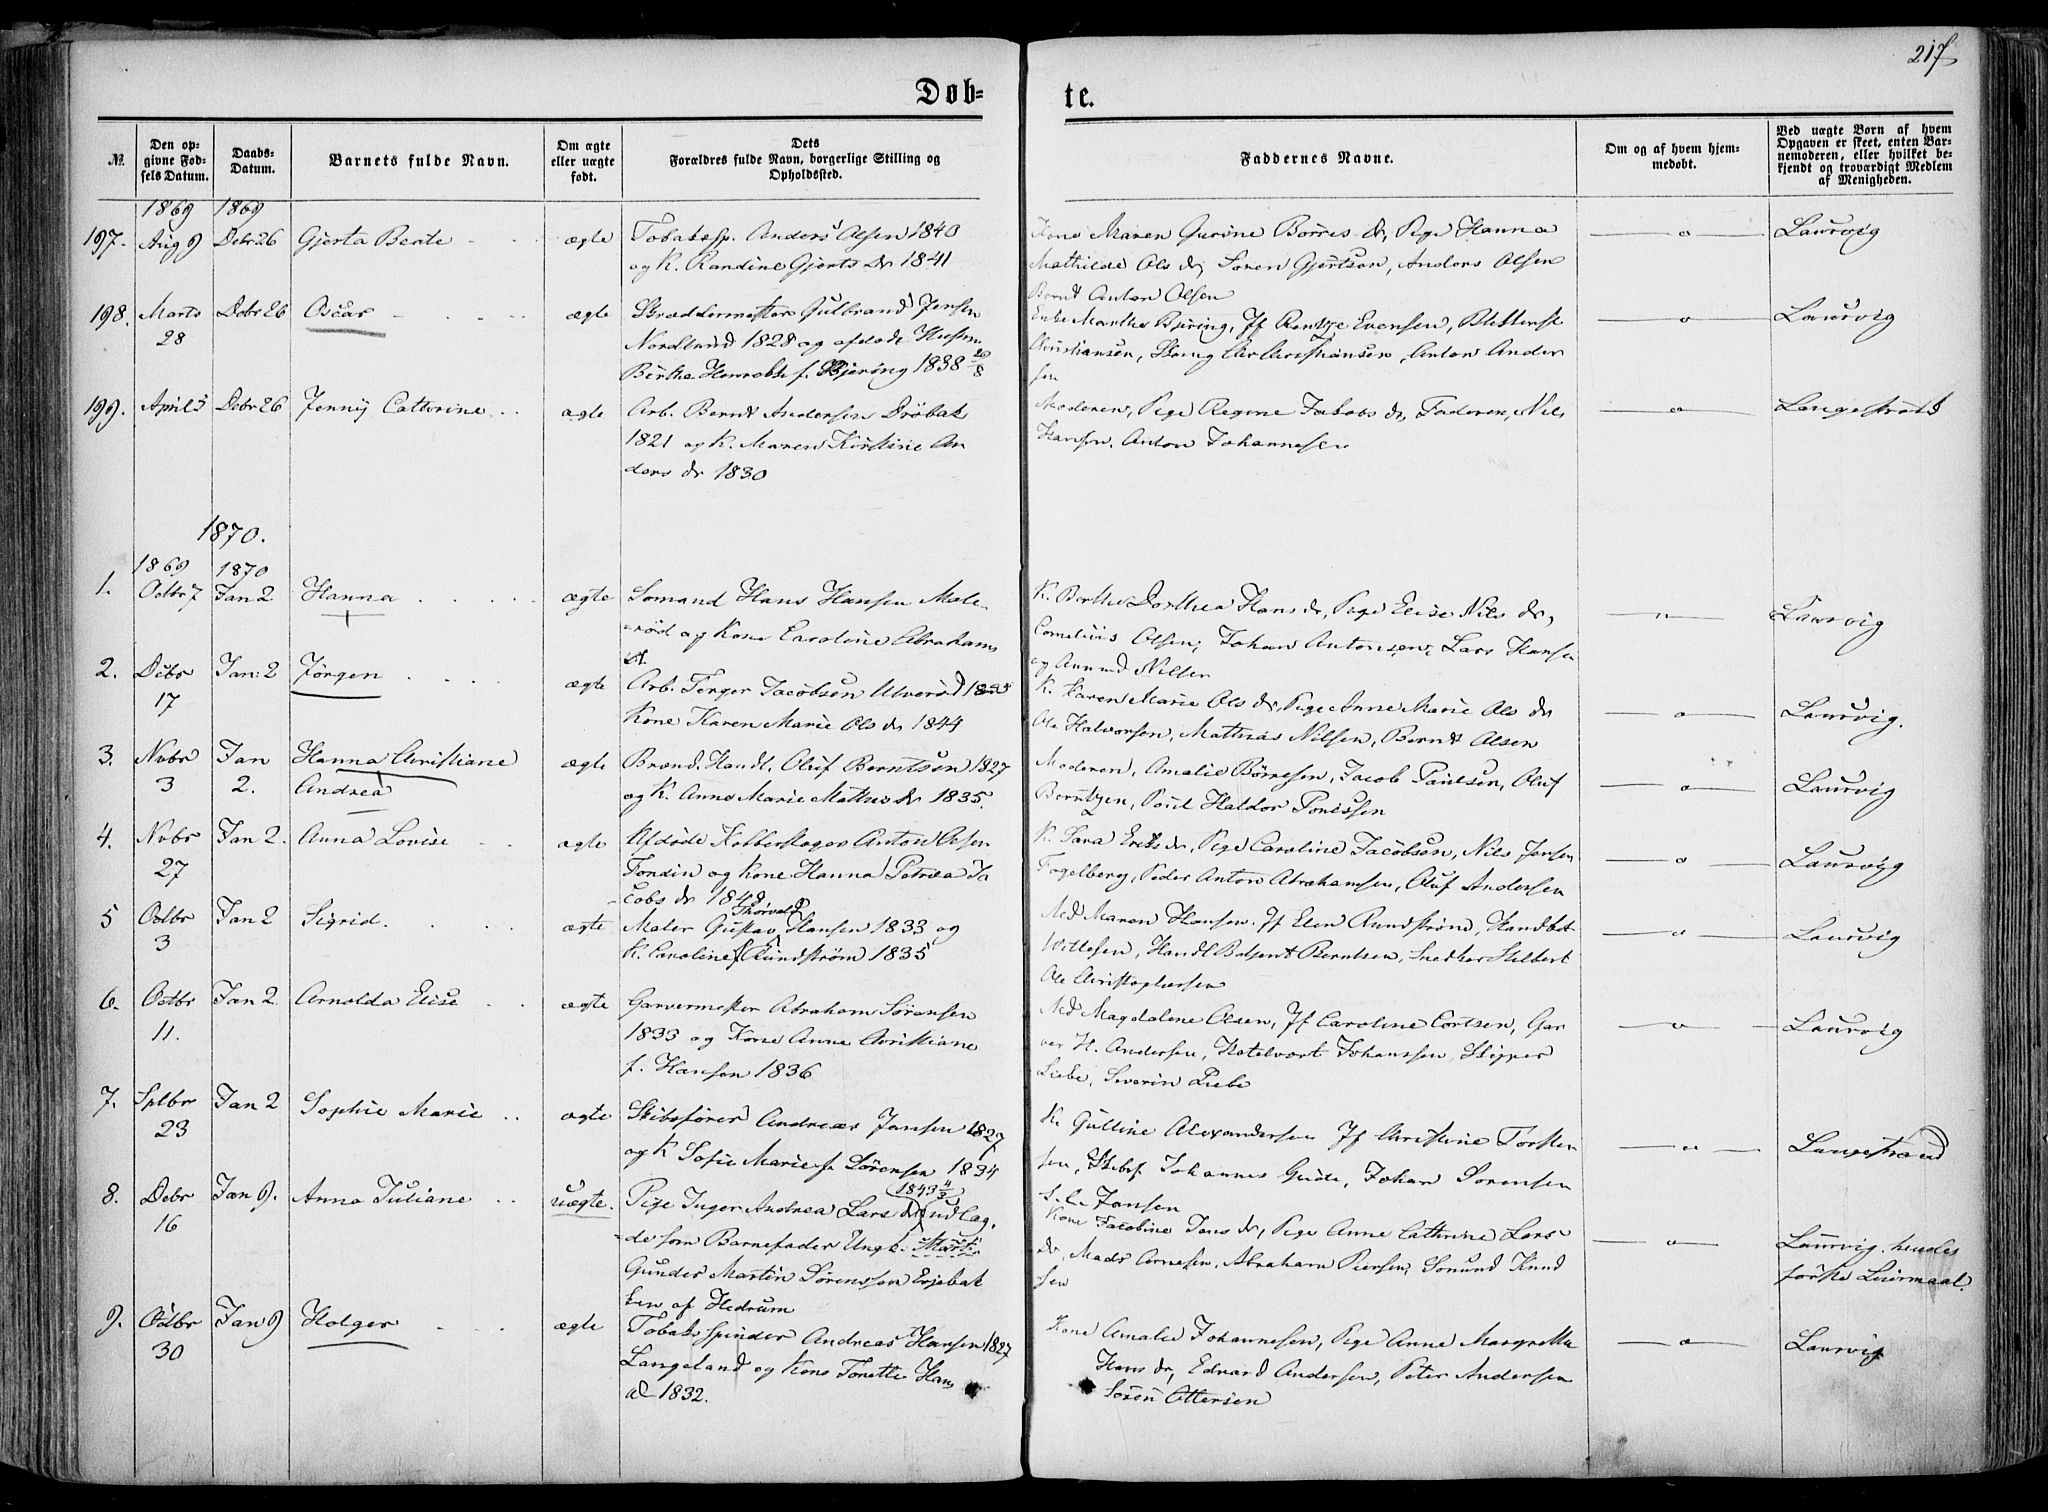 217
Døb-
te.
№.
Den op-
givne Fød-
sels Datum.
Daabs-
Datum.
Barnets fulde Navn.
Om ægte
eller uægte
født.
Dets
Forældres fulde Navn, borgerlige Stilling og
Opholdssted.
Faddernes Navne.
Om og af hvem hjem-
medøbt.
Ved uægte Børn af hvem
Opgaven er skeet, enten Bar-
nemoderen, eller hvilket be-
kjendt og troværdigt Medlem
af Menigheden.
1869 1869
197. Aug 9 Debr 26 Gjerta Berte ægte Tobakssp. Anders Olsen 1840
og K. Randine Gjerts dr 1841
Kone Maren Gurine Börres dr, Pige Hanna
Mathilde Ols dr, Soren Gjertsen, Anders Olsen
Bernt Anton Olsen
Laurvig
198. Marts 28 Debr 26 Oscar ægte Skreddermester Gulbrand Jensen
Nordlund 1828 og afdøde Hustru
Birthe f. Bjering 1838
Enke Marthe Bjering, Jf Evensen,
Christiansen, Christiansen, Anton Ander
sen
Laurvig
199. April 5 Debr 26 Jenny Cathrine ægte Arb. Bernt Andersen Drøbak
1821 og K. Maren Kirstine An
ders dr 1830
Moderen, Pige Regine Jakobs dr, Faderen, Nils
Hansen, Anton Johannesen
Langestrand
1870.
1869 1870
1. Octbr 7 Jan 2 Hanna ægte Sømand Hans Hansen Male-
rød og Kone Caroline Abrahams
dr.
K. Berthe Dorthea Hans dr, Pige Elise Nils dr,
Cornelius Olsen, Johan Antonsen, Lars Hansen
og Amund Nilsen
Laurvig
2. Debr 17 Jan: 2 Jörgen ægte Arb. Jacobsen Ulverød 1835
Kone Karen Marie Ols dr 1844
K. Karen Marie Ols dr, Pige Anne Marie Ols dr
Ole Halvorsen, Mathias Nilsen, Bernt Olsen
Laurvig.
3. Nvbr 3 Jan 2. Hanna Christiane
Andrea
ægte Brænd. Handl. Oluf Berntsen 1827
og K. Anne Marie Mathis dr 1835.
Moderen, Amalie Börresen, Jacob Paulsen, Oluf
Berntzen, Poul Haldor Ponissen
Laurvig
4. Nvbr 27 Jan 2. Anna Lovise ægte Afdöde Kobberslager Anton Olsen
Fondin og Kone Hanna Petrea Ja
cobs dr 1848
K. Sara Eriks dr, Pige Caroline Jacobsen, Nils Jensen
Fogelberg, Peder Anton Abrahamsen, Oluf Andersen
Laurvig
5 Octbr 3 Jan 2 Sigrid. ægte
Thorvald
Maler Gustav Hansen 1833 og
K. Caroline f Rundström 1835
Md Maren Hansen, Jf Elen Rundström,
Willesen, Handl Berntsen, Snedker
Ole Christophersen
Laurvig
6. Octbr 11. Jan 2 Arnolda Elise ægte Garvermester Abraham Sörensen
1833 og Kone Anne Christiane
f. Hansen 1836
Md Magdalene Olsen, Jf Caroline Cortsen, Gar
ver H. Andersen, Johanssen, Skipper
Liebe, Severin Liebe
Laurvig
7. Sptbr 23 Jan 2 Sophie Marie ægte Skibsfører Andreas Jansen 1827
og K Sofie Marie f. Sörensen 1834
K. Gulline Alexandersen Jf Christine Torsten
sen, Skbsf. Johannes Gude, Johan Sorensen
Jansen
Langestrand
8. Debr 16 Jan 9. Anna Juliane uægte.
1843 4/3
Pige Inger Andrea Lars dr, udlag.
de som Barnefader Ungk.
Gunder Martin Sörenssen
ken af Hedrum
Kone Jacobine Jans dr, Pige Anne Cathrine Lars
dr, Mads Arnesen, Abraham Piersen, Sömand Knud
sen
Laurvig. hendes
förste Leiermaal.
9. Octbr 30 Jan 9 Holger ægte Tobaksspinder Andreas Hansen 1827
Langeland og Kone Tonette Hans
dr 1832.
Kone Amalie Johannesen, Pige Anne Margrethe
Hans dr, Edvard Andersen, Peter Andersen
Sören Ottersen
Laurvig